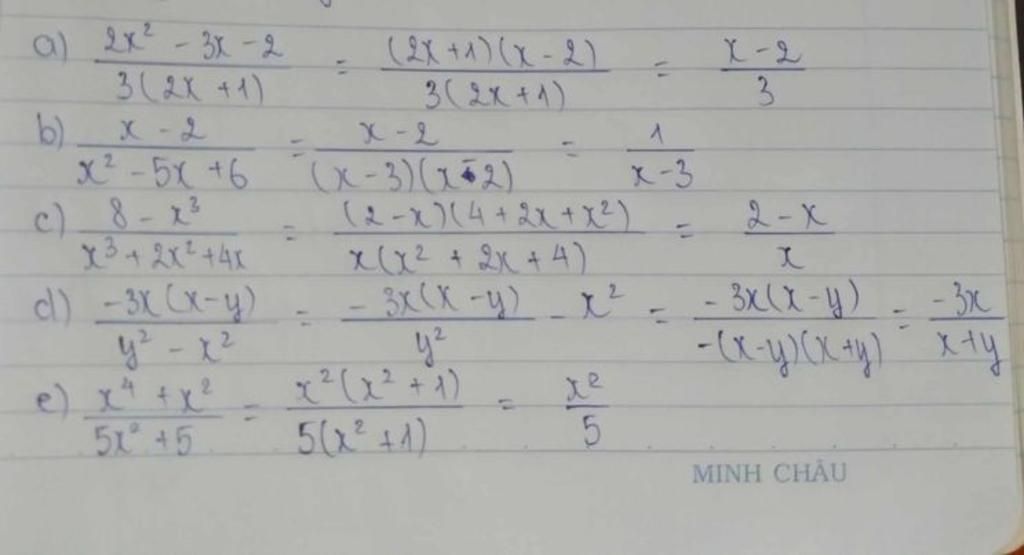 a) (2x² - 3x - 2)/(3(2x + 1)) = ((2x + 1)(x - 2))/(3(2x + 1)) = (x - 2)/3
b) (x - 2)/(x² - 5x + 6) = (x - 2)/((x - 3)(x - 2)) = 1/(x - 3)
c) (8 - x³)/(x³ + 2x² + 4x) = ((2 - x)(4 + 2x + x²))/(x(x² + 2x + 4)) = (2 - x)/x
d) (-3x(x - y))/(y² - x²) = (-3x(x - y))/y² - x² = (-3x(x - y))/(-(x - y)(x + y)) = (-3x)/(x + y)
e) (x⁴ + x²)/(5x² + 5) = (x²(x² + 1))/(5(x² + 1)) = x²/5
MINH CHÂU